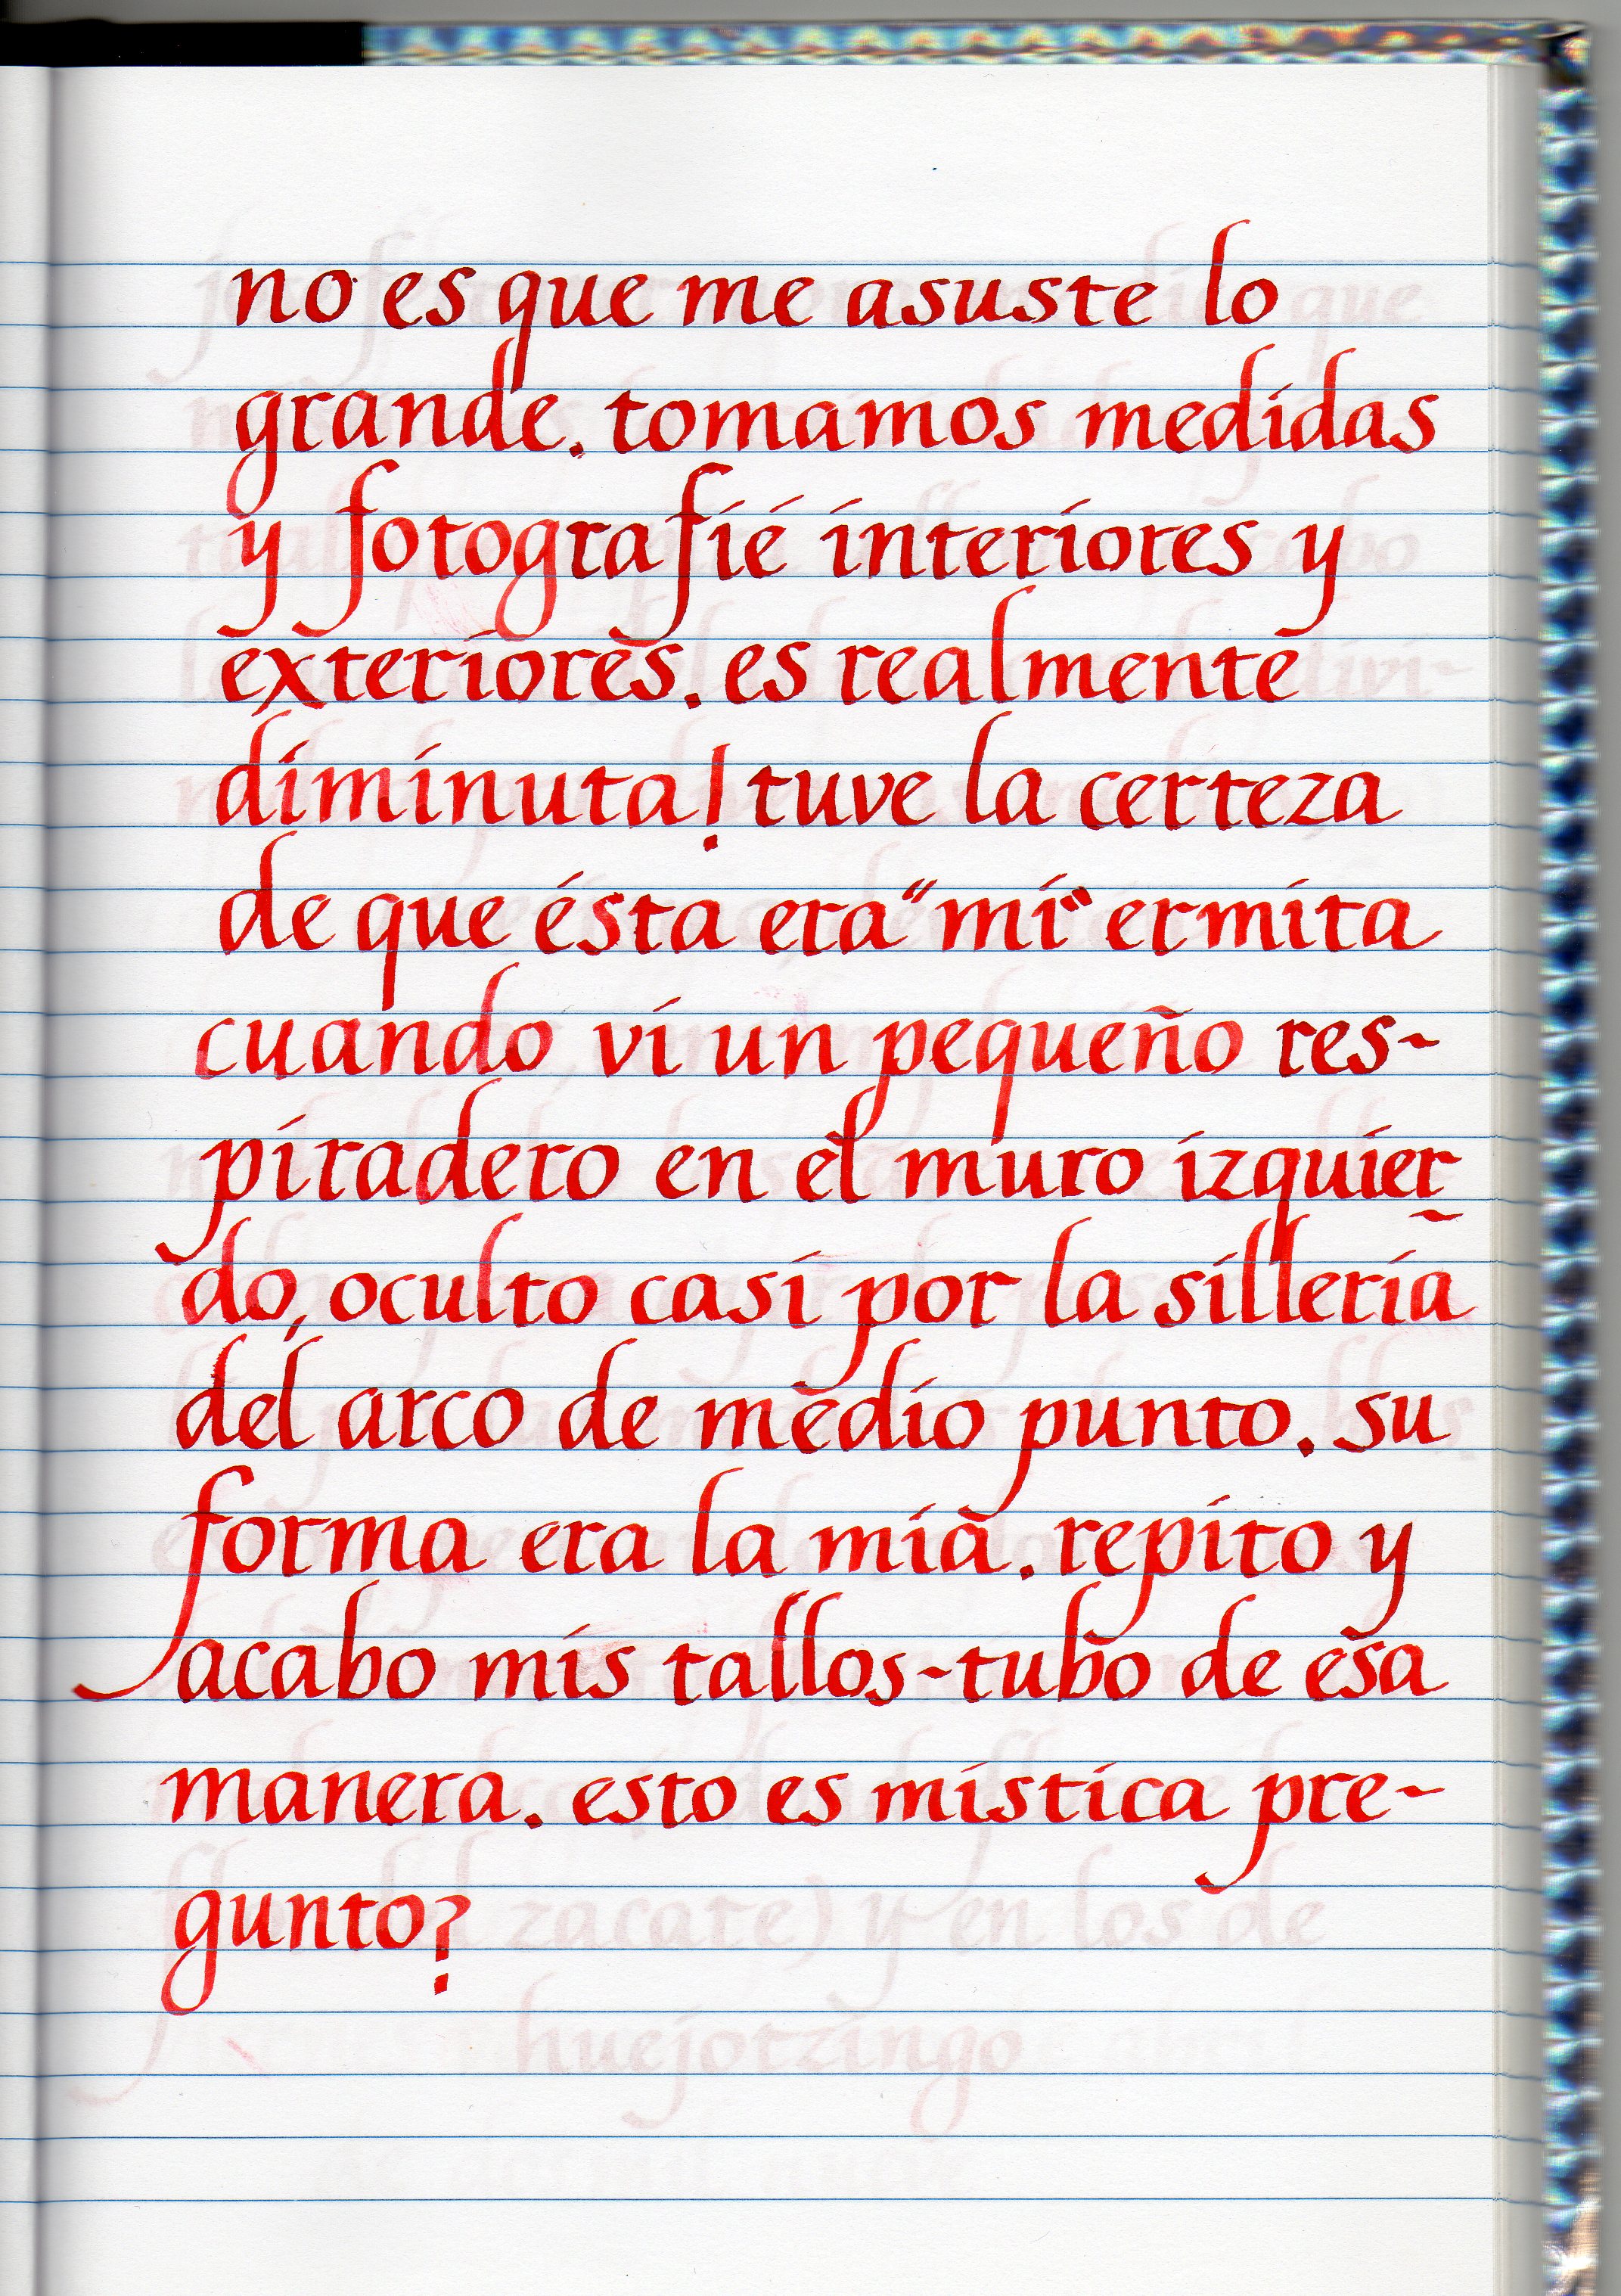 no es que me asuste lo
grande. tomamos medidas
y fotografié interiores y
exteriores. es realmente
diminuta! tuve la certeza
de que ésta era "mi" ermita
cuando vi un pequeño res-
piradero en el muro izquier-
do, oculto casi por la sillería
del arco de medio punto. su
forma era la mía. repito y
acabo mis tallos-tubo de esa
manera. esto es mística pre-
gunto?
zacate) y en los de
huejotzingo